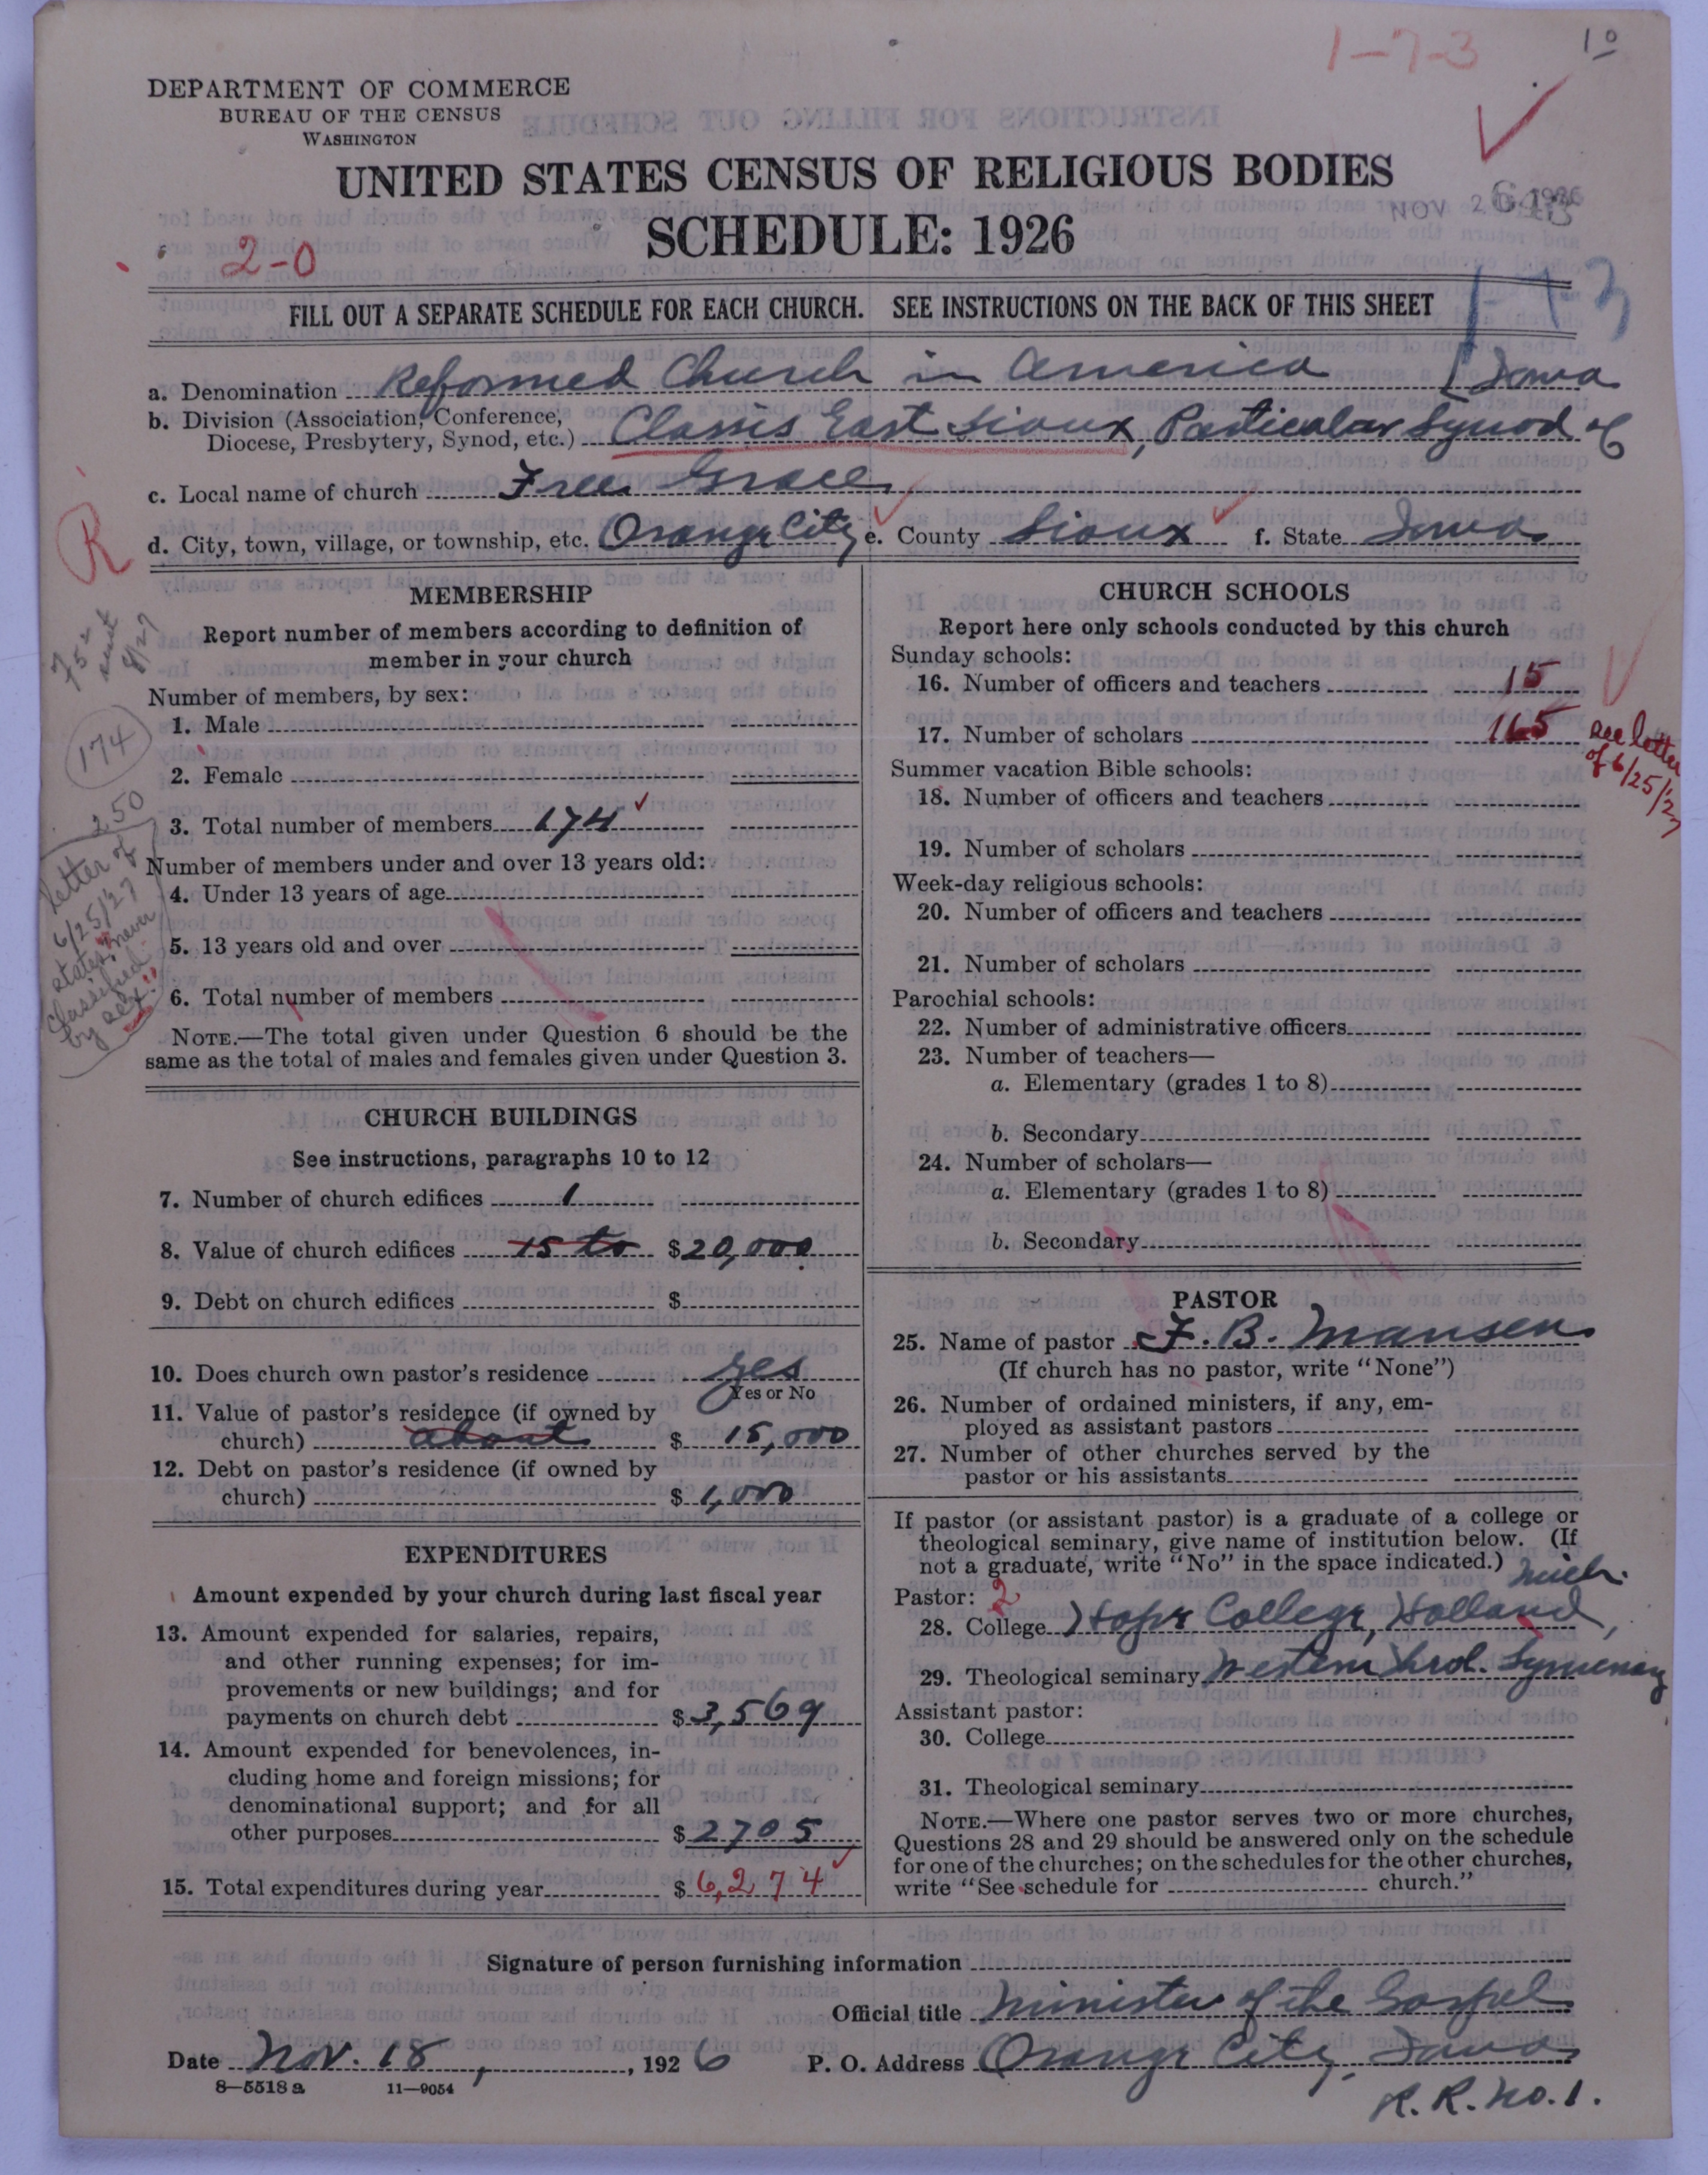 1-7-3
10
DEPARTMENT OF COMMERCE
BUREAU OF THE CENSUS
WASHINGTON
UNITED STATES CENSUS OF RELIGIOUS BODIES
NOV 26 1926
SCHEDULE: 1926
2-0
1-7-3
FILL OUT A SEPARATE SCHEDULE FOR EACH CHURCH. SEE INSTRUCTIONS ON THE BACK OF THIS SHEET
a. Denomination Reformed Church in America
b. Division (Association, Conference, Diocese, Presbytery, Synod, etc.) Classis East Sioux, Particular Synod of Iowa
c. Local name of church Free Grace
d. City, town, village, or township, etc. Orange City e. County Sioux f. State Iowa
R
MEMBERSHIP
Report number of members according to definition of
member in your church
Number of members, by sex:
1. Male
2. Female
3. Total number of members 174
Number of members under and over 13 years old:
4. Under 13 years of age
5. 13 years old and over
6. Total number of members
NOTE.—The total given under Question 6 should be the
same as the total of males and females given under Question 3.
174
250
letter of
6/25/27
states "never
classified
by sex"
CHURCH BUILDINGS
See instructions, paragraphs 10 to 12
7. Number of church edifices 1
8. Value of church edifices 15 to $20,000
9. Debt on church edifices $
10. Does church own pastor's residence yes
Yes or No
11. Value of pastor's residence (if owned by
church) about $ 15,000
12. Debt on pastor's residence (if owned by
church) $ 1,000
EXPENDITURES
Amount expended by your church during last fiscal year
13. Amount expended for salaries, repairs,
and other running expenses; for im-
provements or new buildings; and for
payments on church debt $ 3,569
14. Amount expended for benevolences, in-
cluding home and foreign missions; for
denominational support; and for all
other purposes $ 2705
15. Total expenditures during year $ 6,274
CHURCH SCHOOLS
Report here only schools conducted by this church
Sunday schools:
16. Number of officers and teachers 15
17. Number of scholars 165
see letter
of 6/25/27
Summer vacation Bible schools:
18. Number of officers and teachers
19. Number of scholars
Week-day religious schools:
20. Number of officers and teachers
21. Number of scholars
Parochial schools:
22. Number of administrative officers
23. Number of teachers—
a. Elementary (grades 1 to 8)
b. Secondary
24. Number of scholars—
a. Elementary (grades 1 to 8)
b. Secondary
PASTOR
25. Name of pastor F. B. Mansen
(If church has no pastor, write "None")
26. Number of ordained ministers, if any, em-
ployed as assistant pastors
27. Number of other churches served by the
pastor or his assistants
If pastor (or assistant pastor) is a graduate of a college or
theological seminary, give name of institution below. (If
not a graduate, write "No" in the space indicated.)
Pastor: 2
28. College Hope College, Holland, Mich.
29. Theological seminary Western Theol. Symenary
Assistant pastor:
30. College
31. Theological seminary
NOTE.—Where one pastor serves two or more churches,
Questions 28 and 29 should be answered only on the schedule
for one of the churches; on the schedules for the other churches,
write "See schedule for church."
Signature of person furnishing information
Official title Minister of the Gospel
Date Nov. 18, 1926 P. O. Address Orange City, Iowa
8—5518a 11—9054
R. R. No. 1.